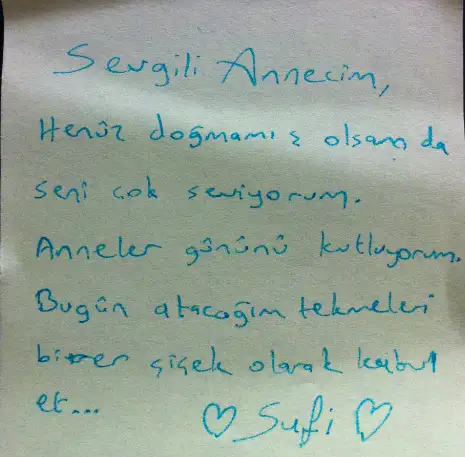 Sevgili Annecim,
Henüz doğmamış olsam da
seni çok seviyorum.
Anneler gününü kutluyorum.
Bugün atacağım tekmeleri
birer çiçek olarak kabul
et...
♡ Sufi ♡